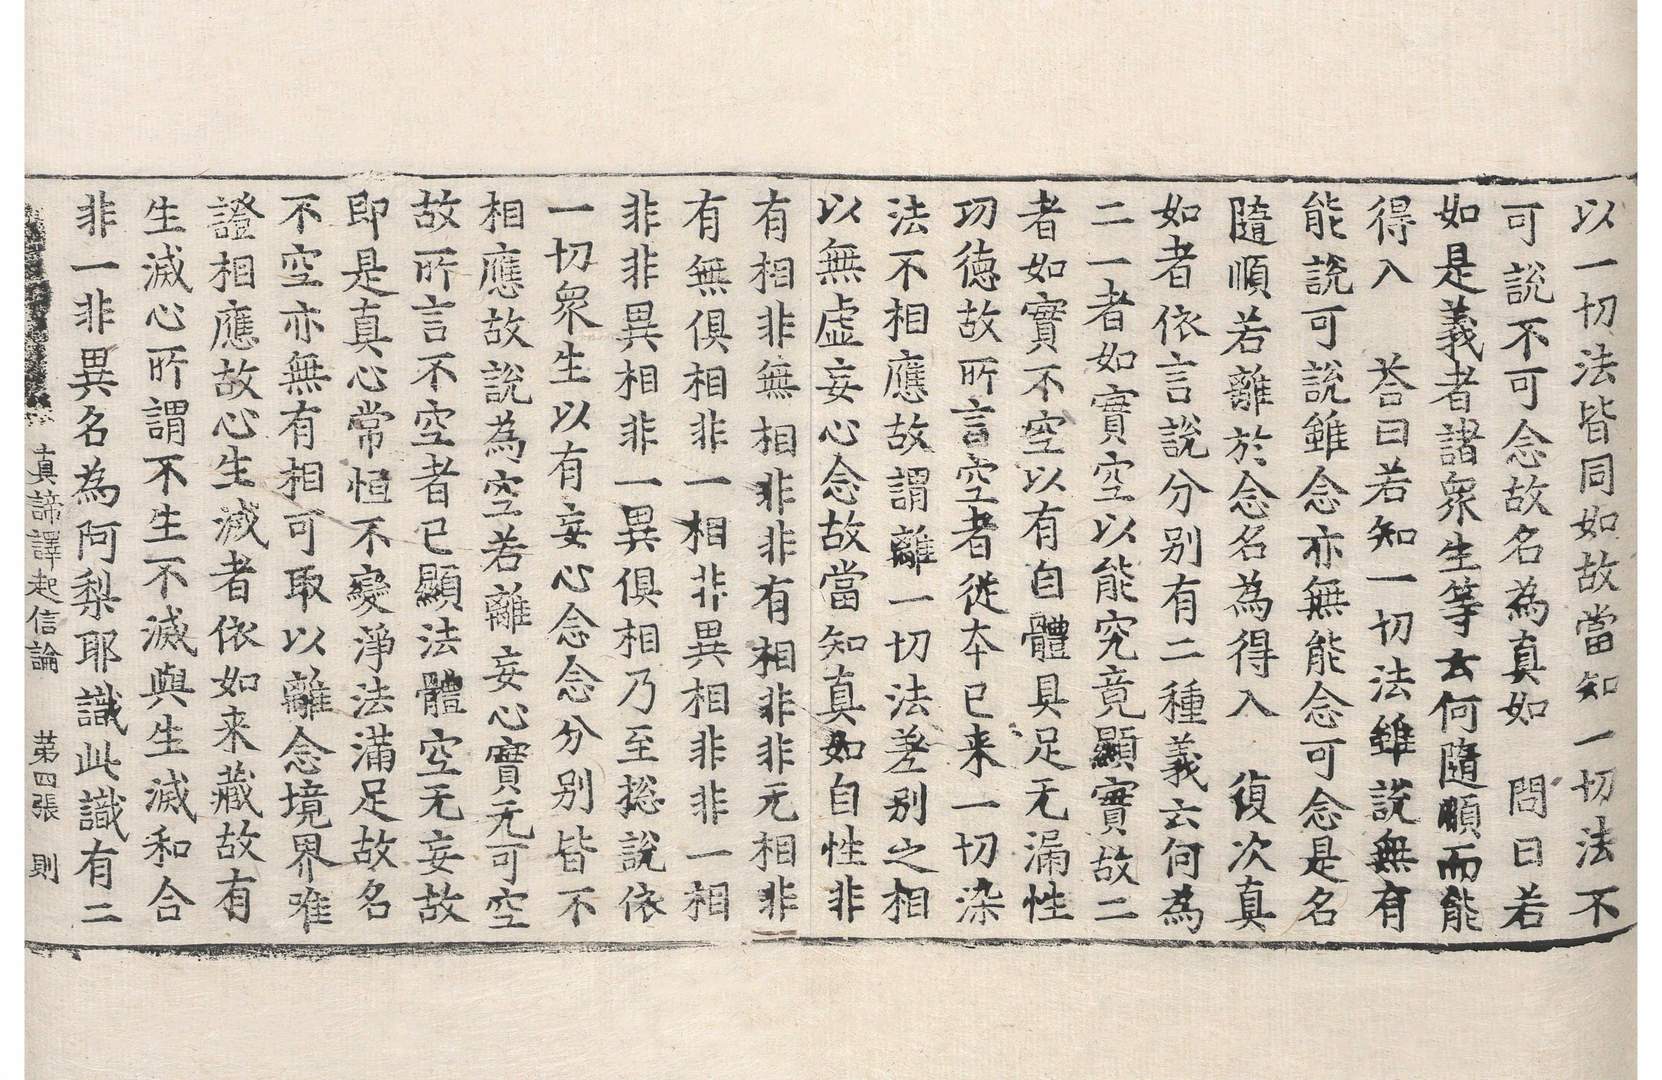 以一切法皆同如故當知一切法不
可說不可念故名為真如　問曰若
如是義者諸衆生等云何隨順而能
得入　荅曰若知一切法雖說無有
能說可說雖念亦無能念可念是名
隨順若離於念名為得入　復次真
如者依言說分別有二種義云何為
二一者如實空以能究竟顯實故二
者如實不空以有自體具足无漏性
功德故所言空者從本已来一切染
法不相應故謂離一切法差別之相
以無虛妄心念故當知真如自性非
有相非無相非非有相非非无相非
有無俱相非一相非異相非非一相
非非異相非非一異俱相乃至捴說依
一切衆生以有妄心念念分別皆不
相應故說為空若離妄心實无可空
故所言不空者已顯法體空无妄故
即是真心常恒不變淨法滿足故名
不空亦無有相可取以離念境界唯
證相應故心生滅者依如来藏故有
生滅心所謂不生不滅與生滅和合
非一非異名為阿梨耶識此識有二
真諦譯起信論　第四張　則